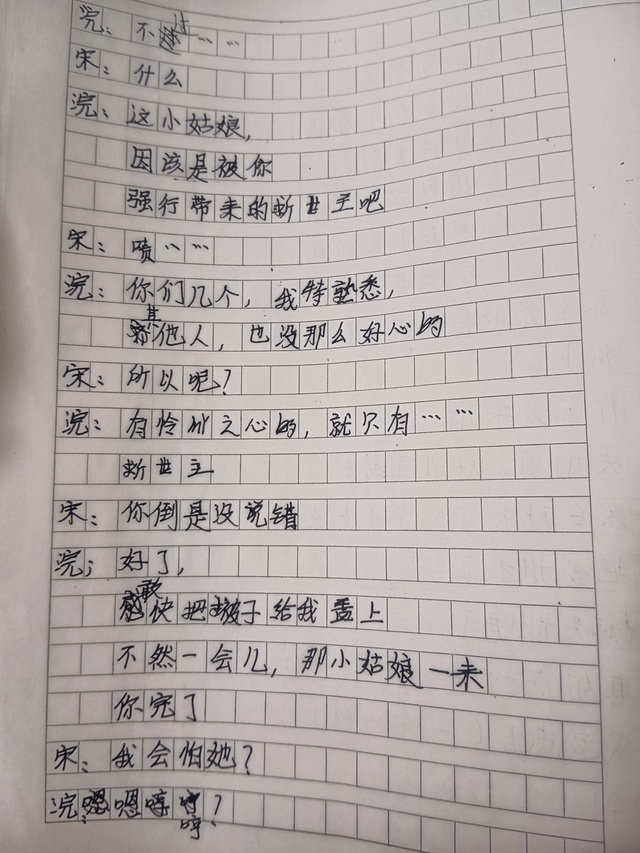 浣：不过……
宋：什么
浣：这小姑娘，
因该是被你
强行带来的断世主吧
宋：啧……
浣：你们几个，我特熟悉，
其他人，也没那么好心的
宋：所以呢？
浣：有怜心之心的，就只有……
断世主
宋：你倒是没说错
浣：好了，
快把被子给我盖上
不然一会儿，那小姑娘一来
你完了
宋：我会怕她？
浣：嗯哼哼？